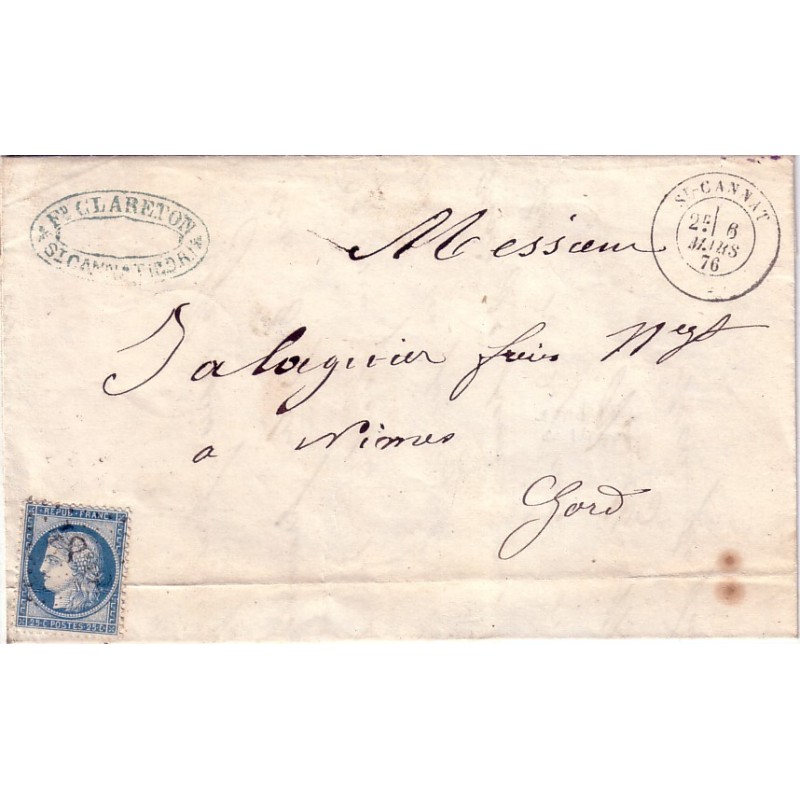 Fd CLARETON
St CANNAT (B.D.R)
St-CANNAT
2E 6
MARS
76
Messieurs
Salaguier frères Negt
a Nimes
Gard
REPUB. FRANC.
25 C POSTES 25 C